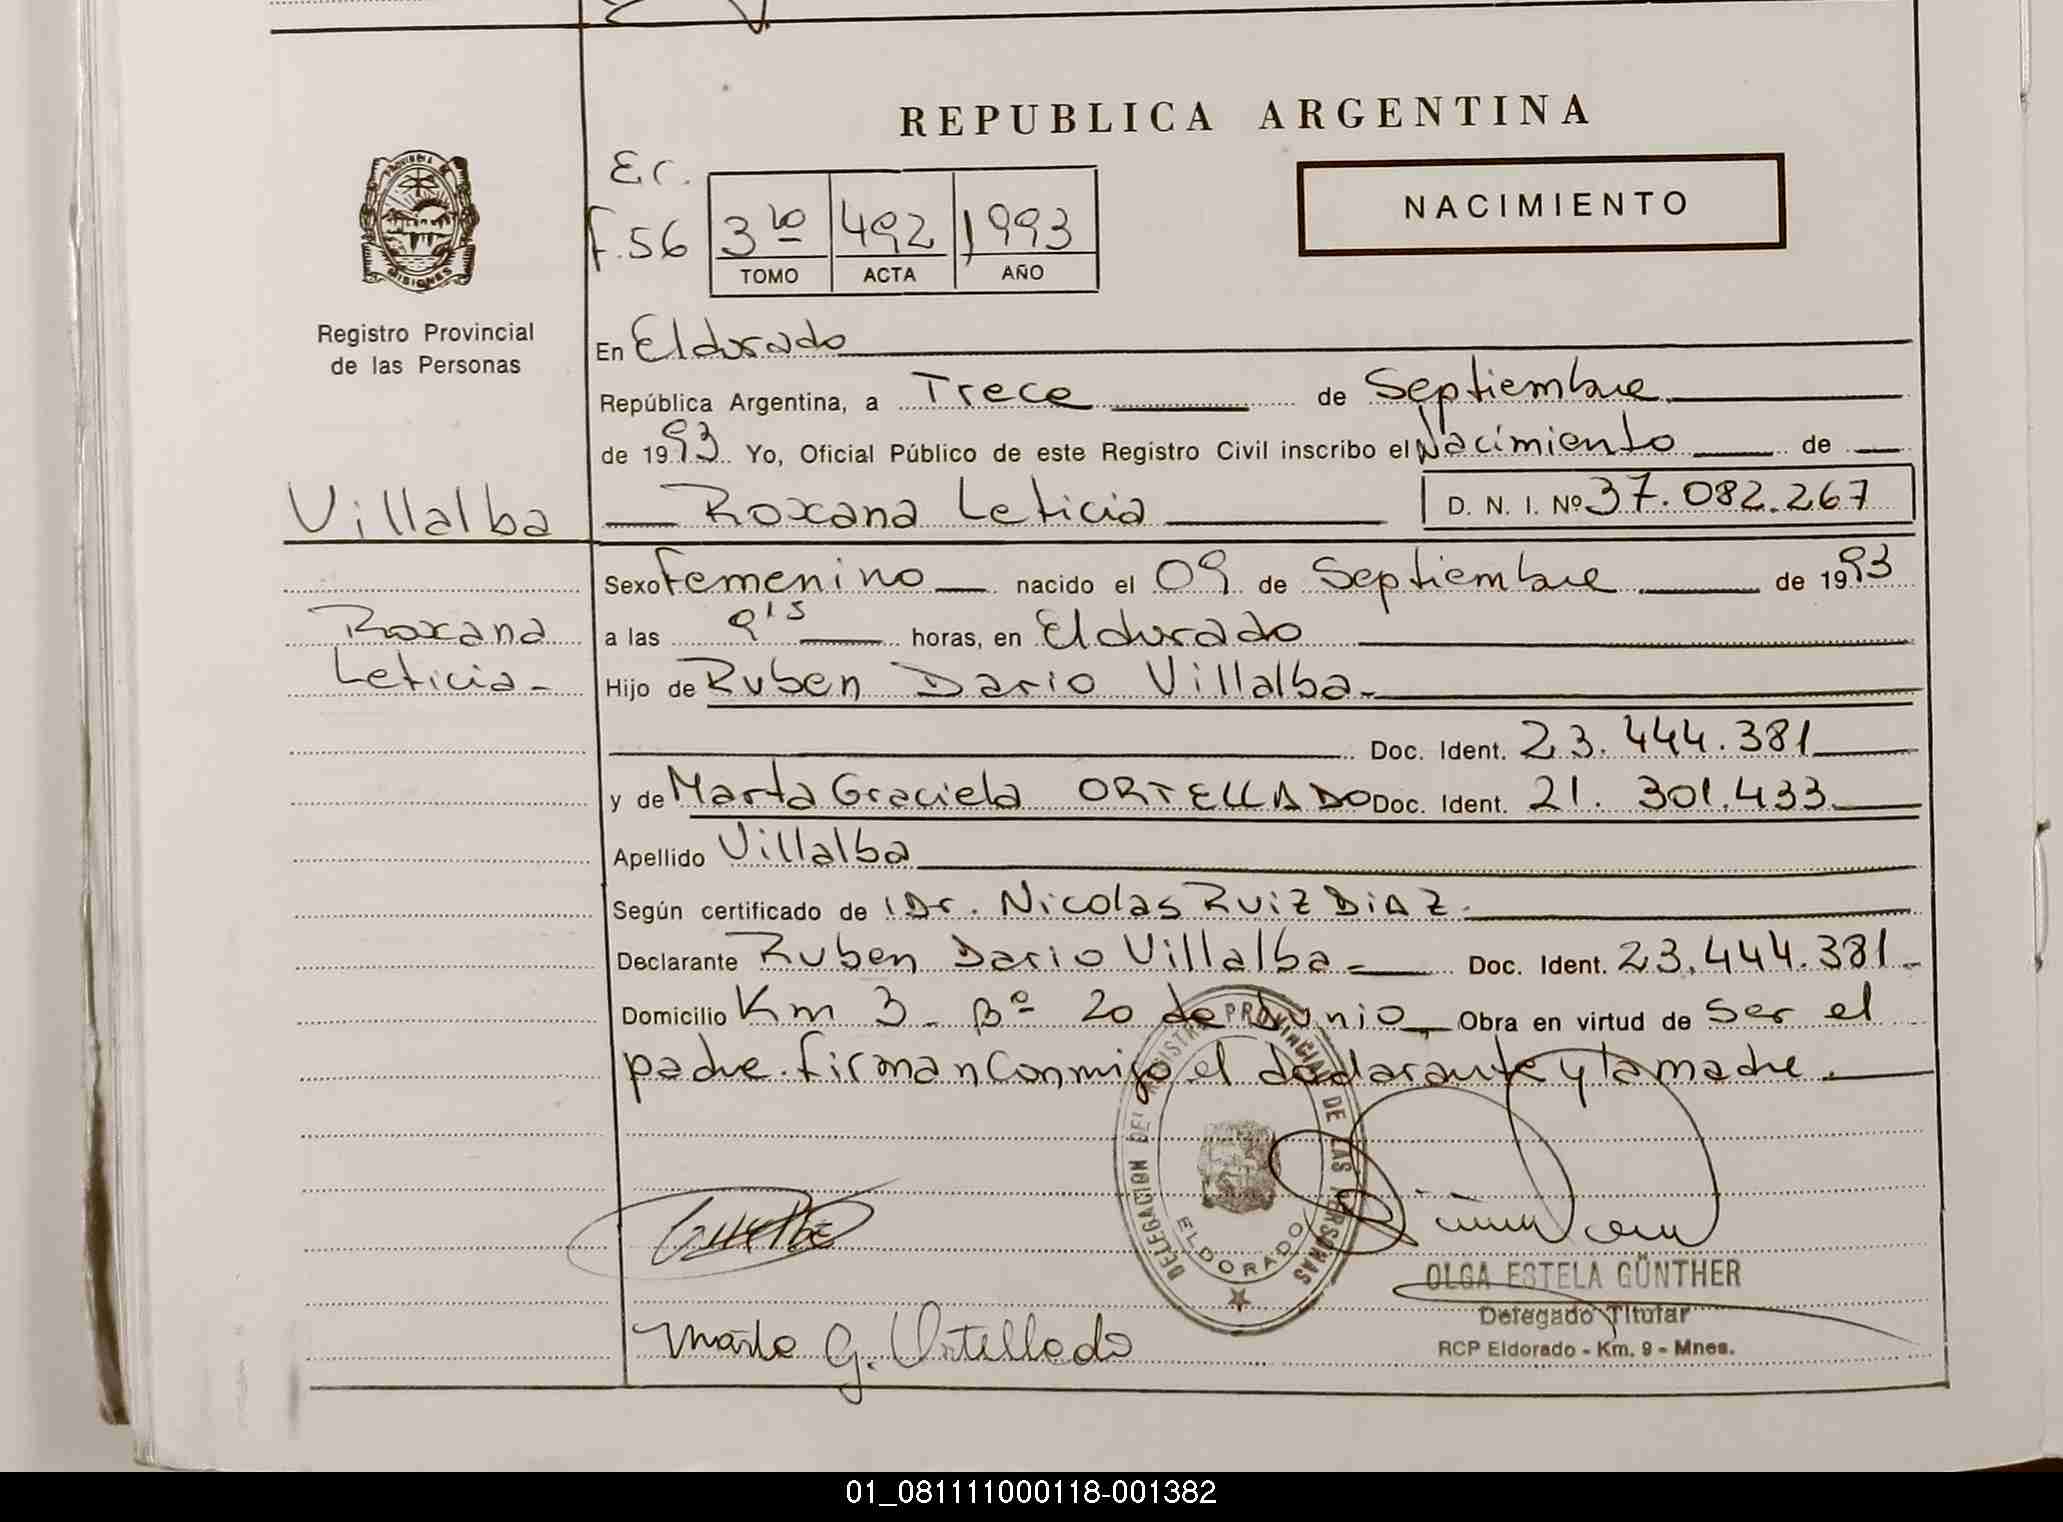 REPUBLICA ARGENTINA
PROVINCIA DE MISIONES
Registro Provincial
de las Personas
Ec.
F. 56
3ro 492 1993
TOMO ACTA AÑO
NACIMIENTO
En Eldorado
República Argentina, a Trece de Septiembre
de 1993 Yo, Oficial Público de este Registro Civil inscribo el Nacimiento de
Villalba
Roxana Leticia D. N. I. Nº 37.082.267
Sexo Femenino nacido el 09 de Septiembre de 1993
Roxana
Leticia-
a las 9'15 horas, en Eldorado
Hijo de Ruben Dario Villalba-
Doc. Ident. 23.444.381
y de Marta Graciela ORTELLADO Doc. Ident. 21. 301.433
Apellido Villalba
Según certificado de Dr. Nicolas RUIZ DIAZ.
Declarante Ruben Dario Villalba= Doc. Ident. 23.444.381-
Domicilio Km 3- Bº 20 de Junio Obra en virtud de Ser el
padre. Firman conmigo el declarante y la madre.
DELEGACION DEL REGISTRO PROVINCIAL DE LAS PERSONAS
ELDORADO
OLGA ESTELA GÜNTHER
Delegado Titular
RCP Eldorado - Km. 9 - Mnes.
Marta G. Ortellado
01_081111000118-001382